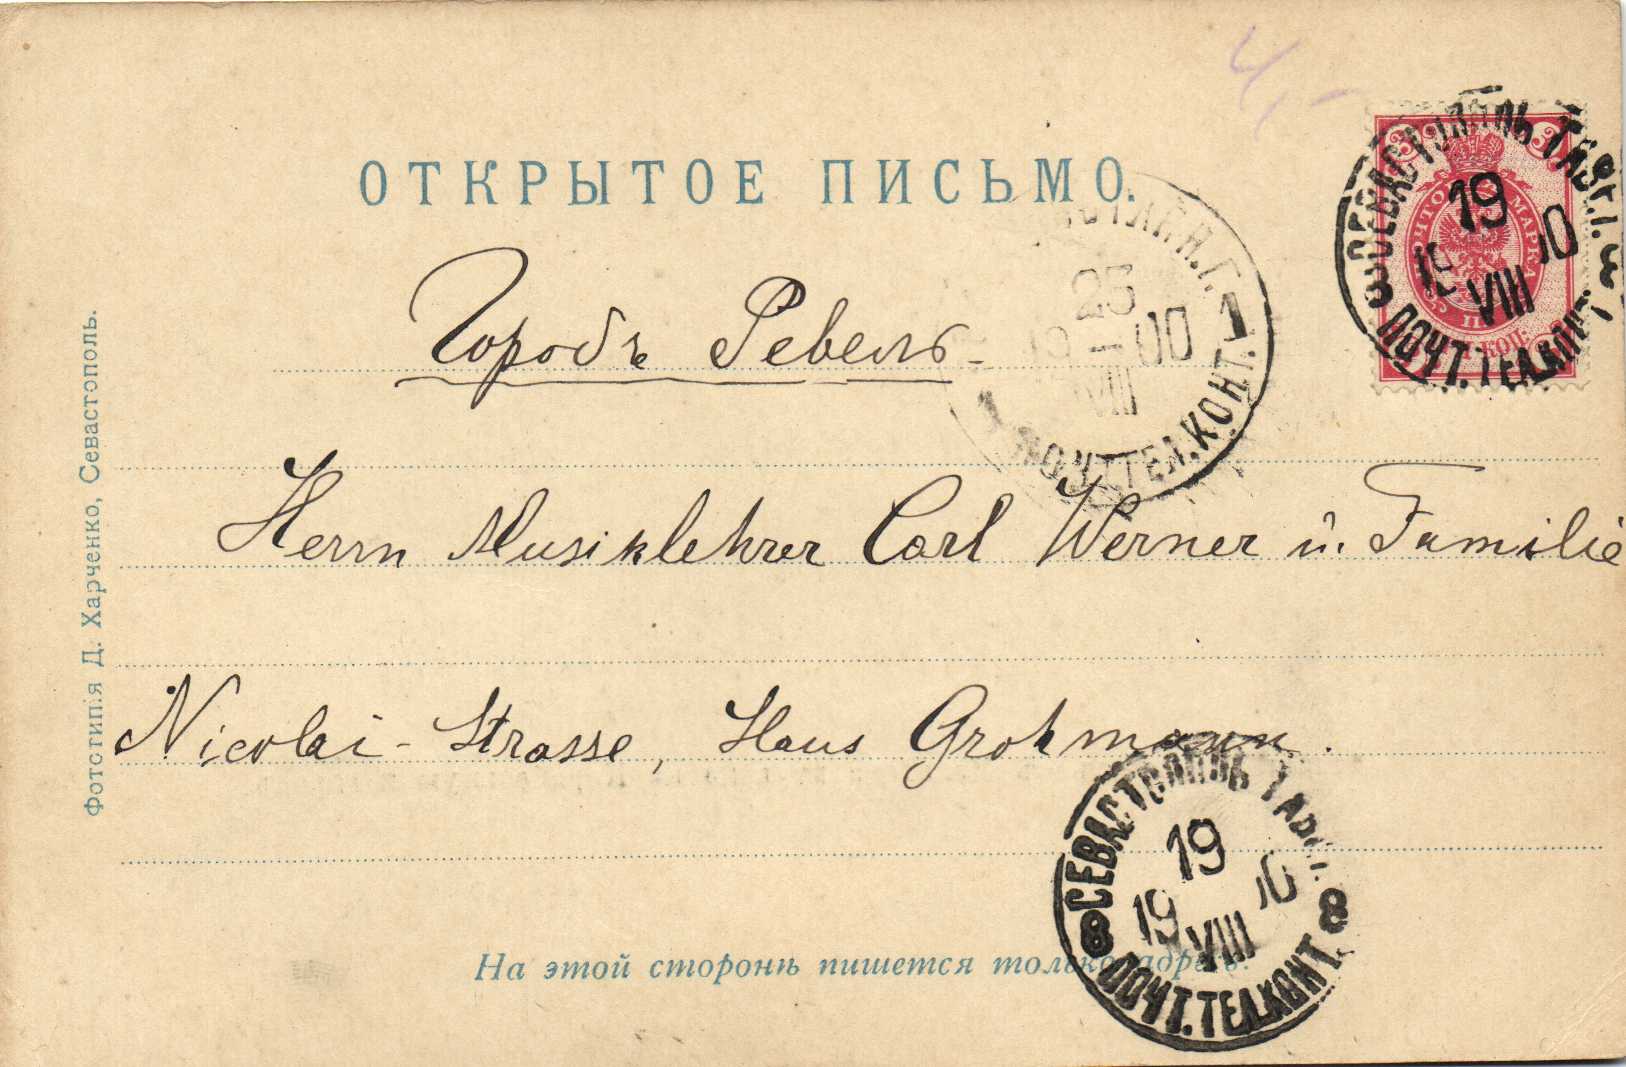 4,-
ОТКРЫТОЕ ПИСЬМО.
Городъ Ревель
Herrn Musiklehrer Carl Werner u. Familie
Nicolai-Strasse, Haus Grohmann.
На этой сторонѣ пишется только адресъ.
Фототипія Д. Харченко, Севастополь.
СЕВАСТОПОЛЬ ТАВР. Г.
19
19 VIII 00
8 ПОЧТ. ТЕЛ. КОНТ. 8
ПОЧТОВ МАРКА
3 КОП.
ЭСТЛЯН. Г.
23
VIII 00
1 ПОЧТ. ТЕЛ. КОНТ. 1
СЕВАСТОПОЛЬ ТАВР.
19
19 VIII 00
8 ПОЧТ. ТЕЛ. КОНТ. 8